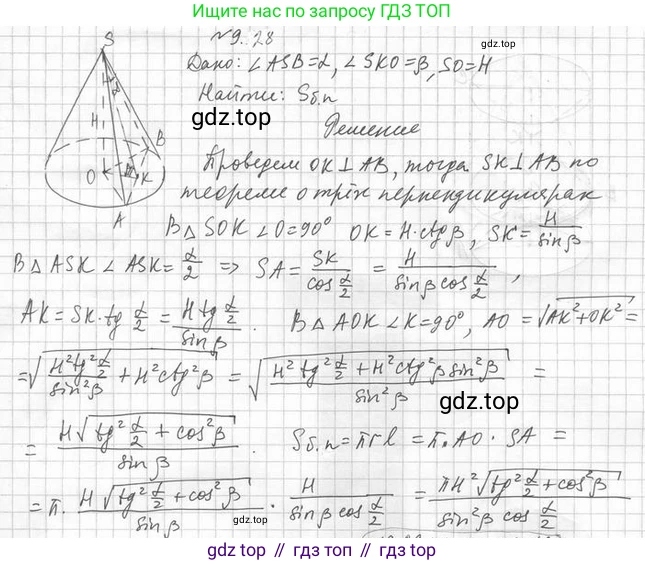 Найти ещё больше решений можно тут по запросу ГДЗ ТОП
№9.28
Дано: ∠ASB=α, ∠SKO=β, SO=H
Найти: Sб.п
gdz.top
Решение
Проведем OK⊥AB, тогда SK⊥AB по
теореме о трёх перпендикулярах
S
H
α
B
O
K
A
В △ SOK ∠O=90° OK=H·ctgβ, SK=H/sinβ
В △ ASK ∠ASK=α/2 ⇒ SA=SK/cos α/2 = H/(sinβ cos α/2),
AK=SK·tg α/2 = H tg α/2 / sinβ. В △ AOK ∠K=90°, AO=√(AK²+OK²)=
=√(H²tg² α/2 / sin²β + H²ctg²β) = √((H²tg² α/2 + H²ctg²β sin²β)/sin²β) =
gdz.top
= H√(tg² α/2 + cos²β) / sinβ. Sб.п=πrl=π·AO·SA=
=π· H√(tg² α/2 + cos²β) / sinβ · H/(sinβ cos α/2) = πH²√(tg² α/2 + cos²β) / (sin²β cos α/2)
gdz.top
gdz.top // гдз.топ // gdz.top // гдз.топ